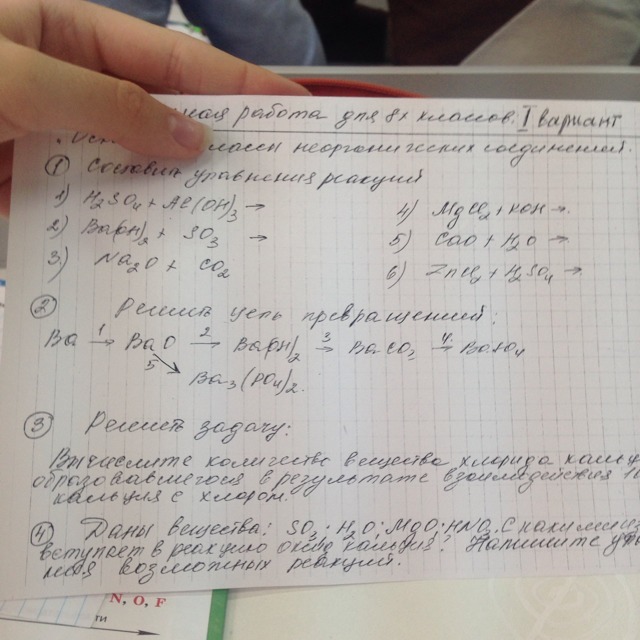 работа для 8х классов. I вариант
неорганических соединений.
① Составить уравнения реакций
1) H₂SO₄ + Al(OH)₃ →
4) MgCl₂ + KOH →
2) Ba(OH)₂ + SO₃ →
5) CaO + H₂O →
3) Na₂O + CO₂
6) ZnCl₂ + H₂SO₄ →
② Решить цепь превращений:
Ba 1→ BaO 2→ Ba(OH)₂ 3→ BaCO₃ 4→ BaSO₄
5↘ Ba₃(PO₄)₂.
③ Решить задачу:
Вычислите количество вещества хлорида
образовавшегося в результате взаимодействия
кальция с хлором.
④ Даны вещества: SO₃; H₂O; MgO; HNO₃. С какими из
вступает в реакцию оксид кальция? Напишите
возможных реакций.
N, O, F